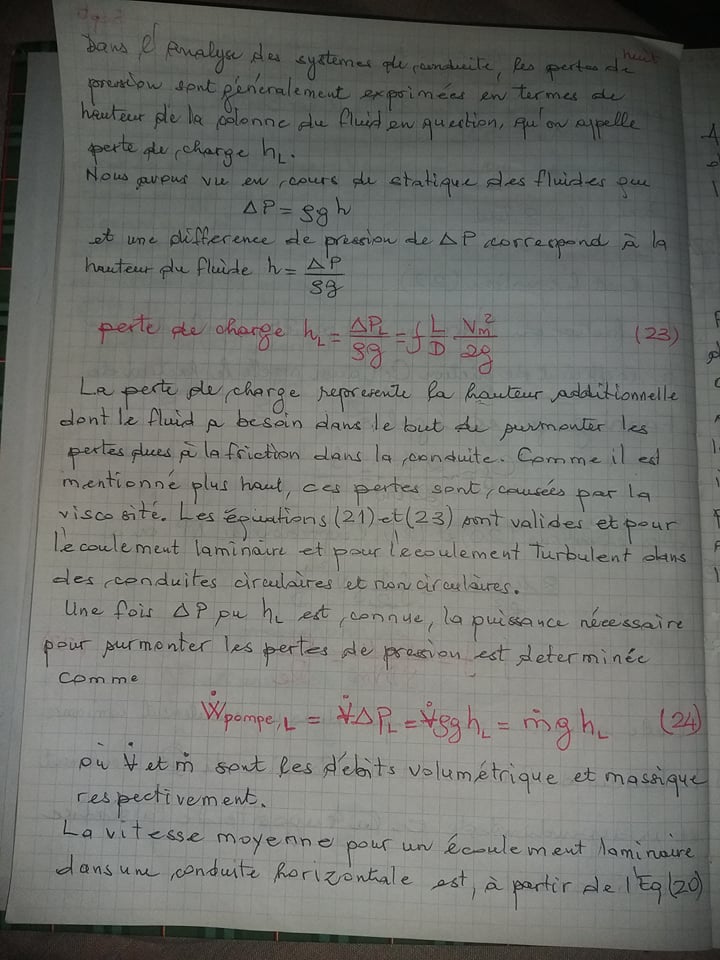 Dans l'Analyse des systemes de conduite, les pertes de
pression sont généralement exprimées en termes de
hauteur de la colonne du fluid en question, qu'on appelle
perte de charge h_L.
Nous avons vu en cours de statique des fluides que
ΔP = ρgh
et une difference de pression de ΔP correspond à la
hauteur du fluide h = ΔP/ρg
perte de charge h_L = ΔP_L/ρg = f L/D V_m²/2g (23)
La perte de charge represente la hauteur additionnelle
dont le fluid a besoin dans le but de surmonter les
pertes dues à la friction dans la conduite. Comme il est
mentionné plus haut, ces pertes sont causées par la
viscosité. Les équations (21) et (23) sont valides et pour
l'ecoulement laminaire et pour l'ecoulement Turbulent dans
des conduites circulaires et non circulaires.
Une fois ΔP ou h_L est connue, la puissance nécessaire
pour surmonter les pertes de pression est determinée
comme
Ẇ_pompe,L = V̇ΔP_L = V̇ρgh_L = ṁgh_L (24)
où V̇ et ṁ sont les débits volumétrique et massique
respectivement.
La vitesse moyenne pour un écoulement laminaire
dans une conduite horizontale est, à partir de l'Eq(20)